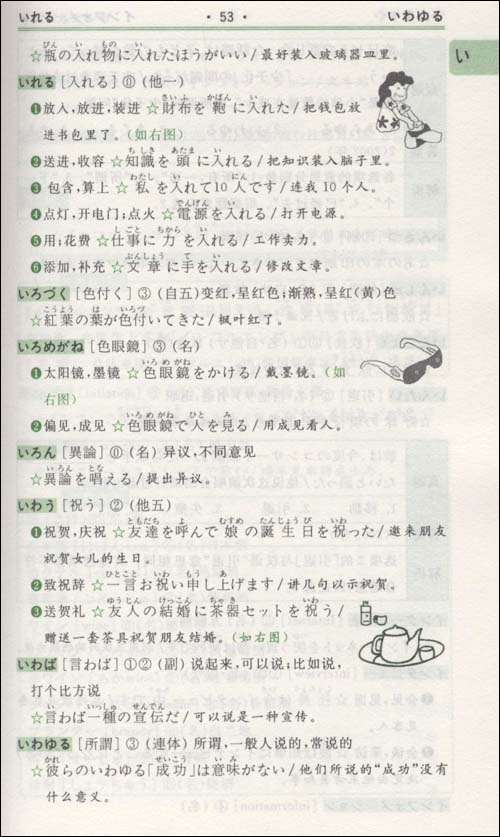 いれる · 53 · いわゆる
い
☆瓶の入れ物に入れたほうがいい/最好装入玻璃器皿里。
いれる [入れる] ⓪ (他一)
❶放入,放进,装进 ☆財布を鞄に入れた/把钱包放
进书包里了。(如右图)
❷送进,收容 ☆知識を頭に入れる/把知识装入脑子里。
❸包含,算上 ☆私を入れて10人です/连我10个人。
❹点灯,开电门;点火 ☆電源を入れる/打开电源。
❺用;花费 ☆仕事に力を入れる/工作卖力。
❻添加,补充 ☆文章に手を入れる/修改文章。
いろづく [色付く] ③ (自五)变红,呈红色;渐熟,呈红(黄)色
☆紅葉の葉が色付いてきた/枫叶红了。
いろめがね [色眼鏡] ③ (名)
❶太阳镜,墨镜 ☆色眼鏡をかける/戴墨镜。(如
右图)
❷偏见,成见 ☆色眼鏡で人を見る/用成见看人。
いろん [異論] ⓪ (名) 异议,不同意见
☆異論を唱える/提出异议。
いわう [祝う] ② (他五)
❶祝贺,庆祝 ☆友達を呼んで娘の誕生日を祝った/邀来朋友
祝贺女儿的生日。
❷致祝辞 ☆一言お祝い申し上げます/讲几句以示祝贺。
❸送贺礼 ☆友人の結婚に茶器セットを祝う/
赠送一套茶具祝贺朋友结婚。(如右图)
いわば [言わば] ①② (副) 说起来,可以说;比如说,
打个比方说
☆言わば一種の宣伝だ/可以说是一种宣传。
いわゆる [所謂] ③ (连体) 所谓,一般人说的,常说的
☆彼らのいわゆる「成功」は意味がない/他们所说的“成功”没有
什么意义。